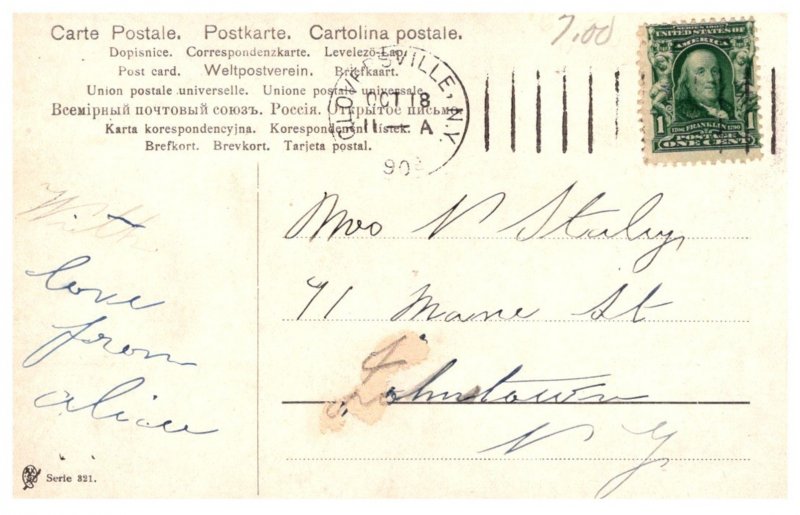 Carte Postale. Postkarte. Cartolina postale.
Dopisnice. Correspondenzkarte. Levelező-Lap.
Post card. Weltpostverein. Briefkaart.
Union postale universelle. Unione postale universale.
Всемірный почтовый союзъ. Россія. Открытое письмо.
Karta korespondencyjna. Korespondenční lístek.
Brefkort. Brevkort. Tarjeta postal.
7.00
GLOVERSVILLE, N.Y.
OCT 18
11 — A
190
SERIES 1902
UNITED STATES OF
AMERICA
1 FRANKLIN 1
1706 1790
POSTAGE
ONE CENT
With
love
from
alice
Mrs N Staley
71 Mane St
Johnstown
N Y
Serie 321.